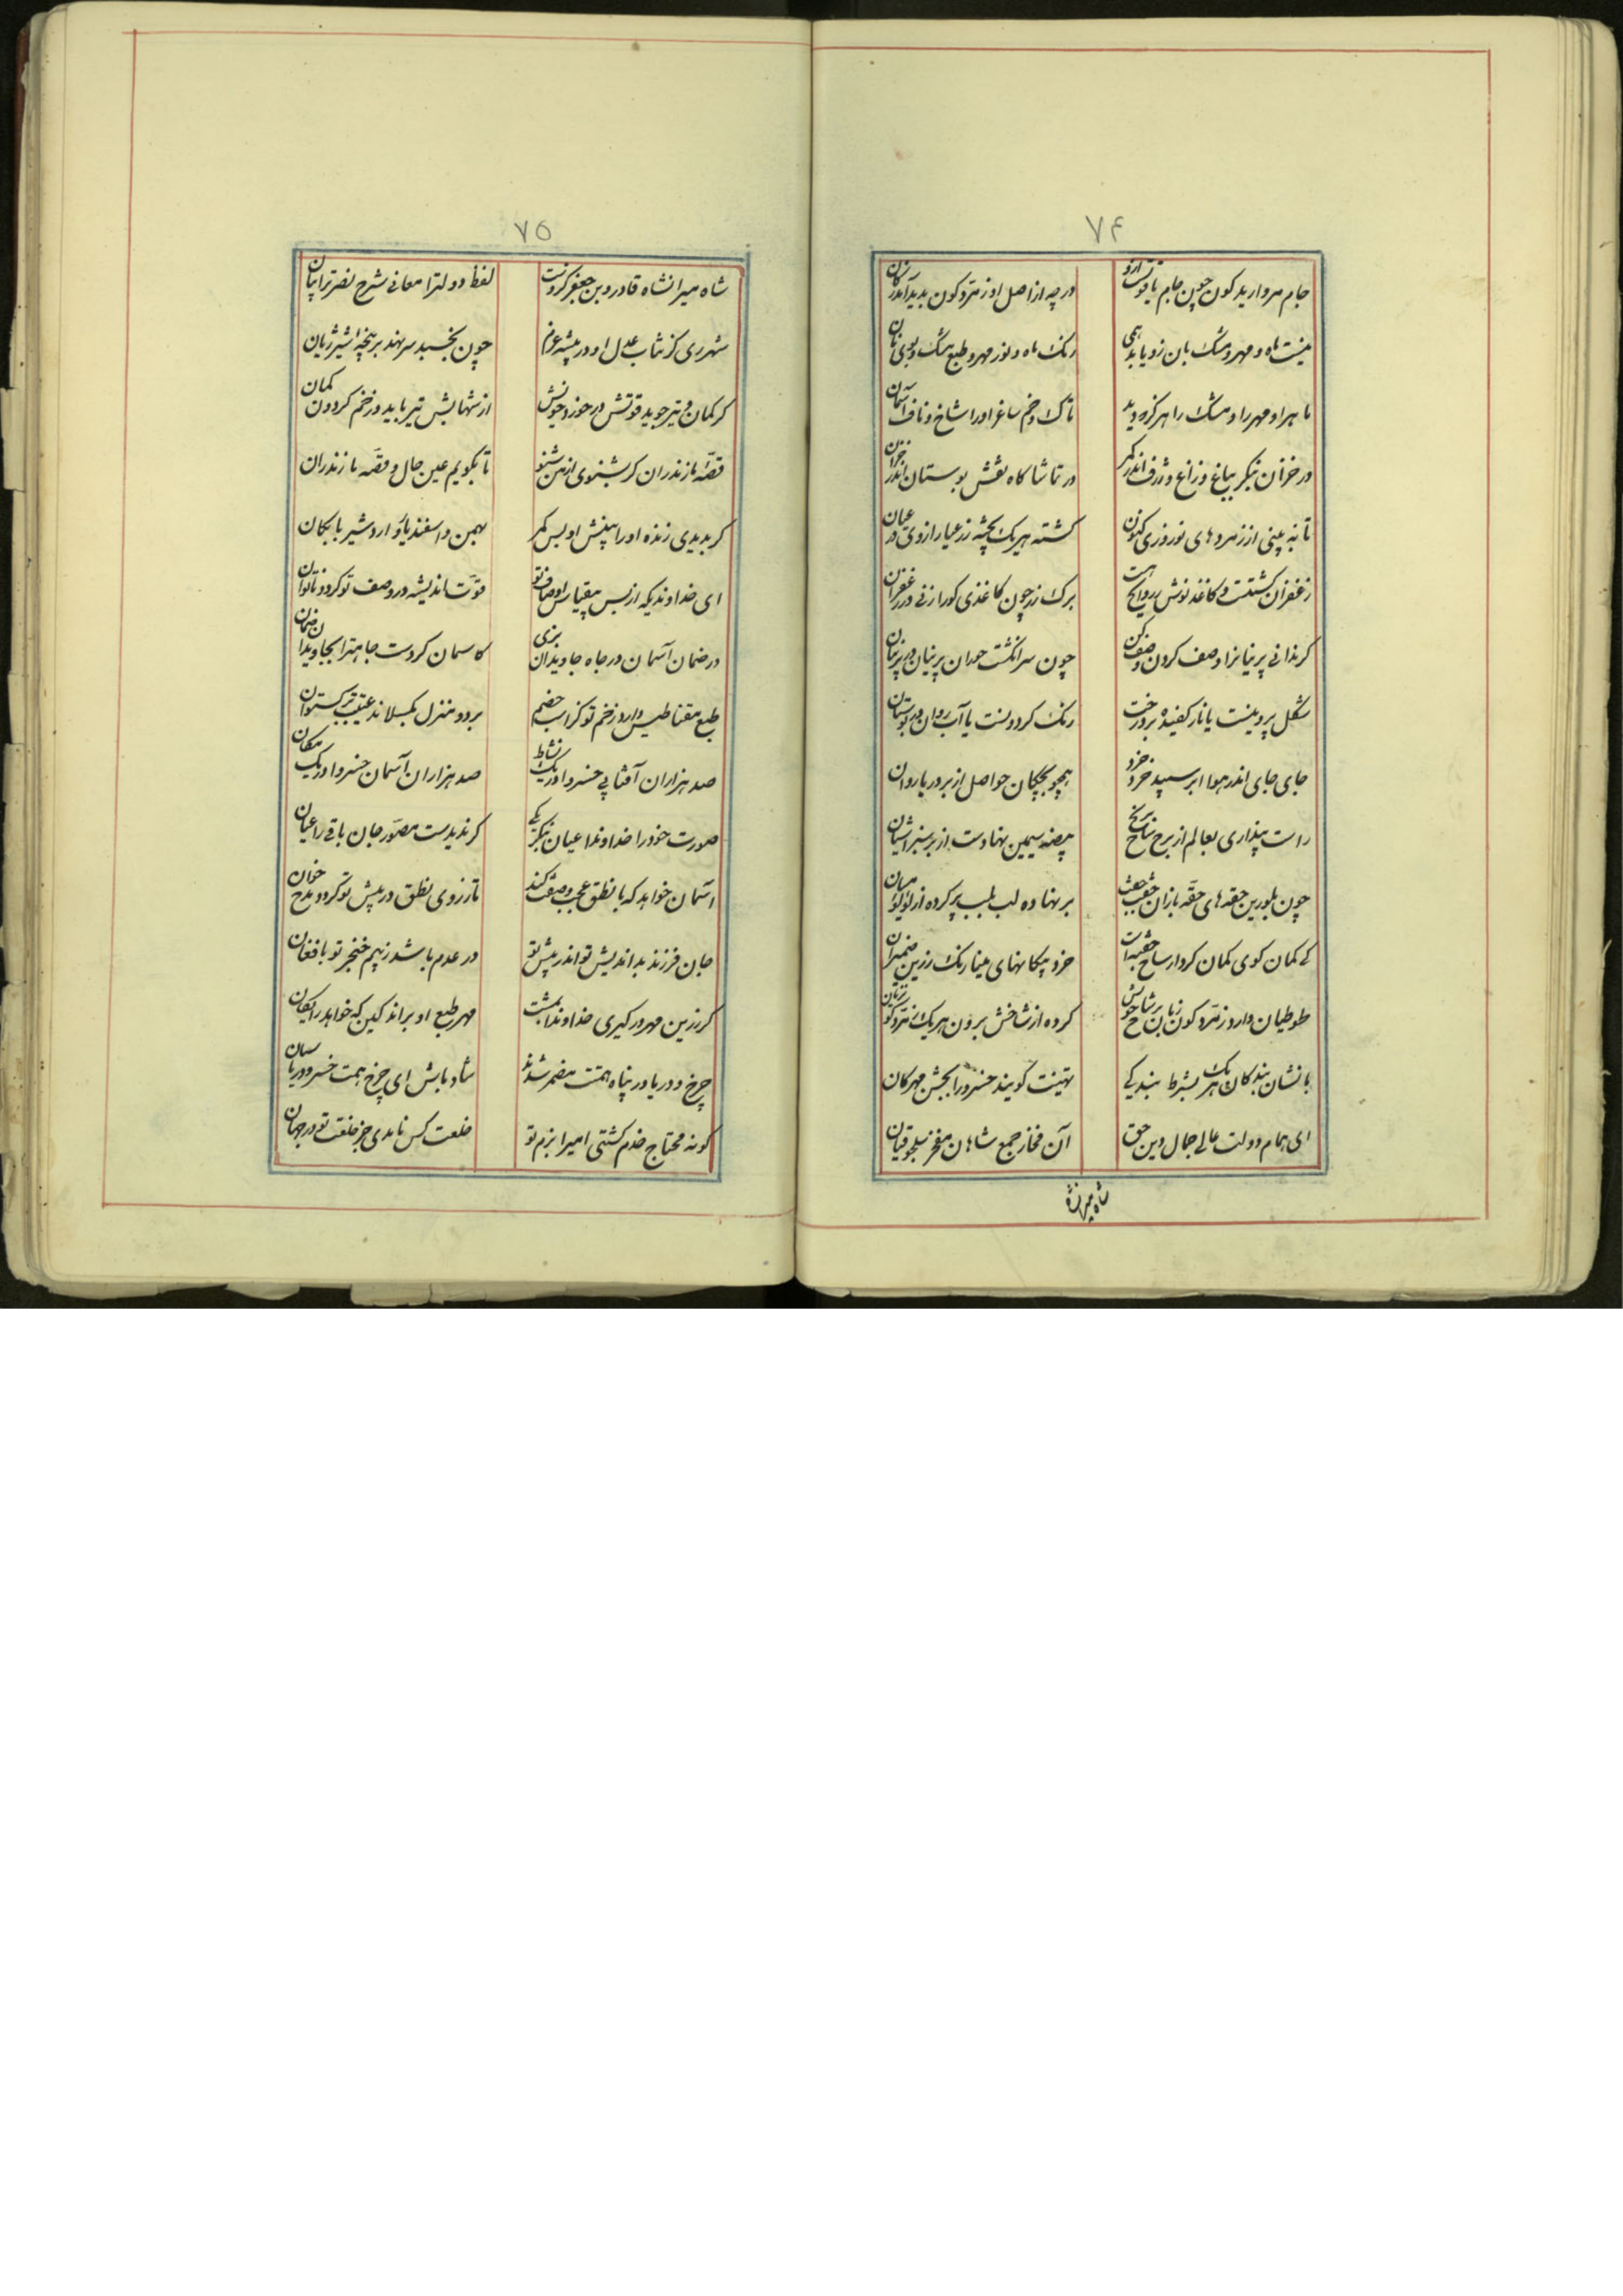 ۷۴
جام مروارید کون چون جام یاقوتست ازو
درچه از اصل او زمرد کون بدید آمد زکان
نیست ماه و مهر و مشک بان زو یابد همی
رنک ماه و نور مهر و طبع مشک و بوی بان
ماهرا و مهر را و مشک را هرکز که دید
تاک و خم ساغر او را شاخ و ناف آسمان
در خزان بنکر بباغ و زاغ و ژرف اندر نکر
در تماشا کاه نقش بوستان اندر خزان
تا به بینی از زمردهای نوروزی کنون
کشته هر یک بچهٔ زر عیار از وی در عیان
زعفران کشتست و کاغذ نوش بروایح هست
برک زر چون کاغذی کورا زنی در زعفران
کر ندانی پرنیانرا وصف کردن وصف کن
چون سر انکشت حوران پرنیان در پرنیان
شکل پروینست یا نار کفیده بر درخت
رنک کردونست یا آب روان در بوستان
جای جای اندر هوا ابر سپید خرد خرد
همچو بچکان حواصل از بر دریا روان
راست پنداری بعالم از برج شاخ ترنج
بیضه سیمین نهادست از بر سبز آشیان
چون بلورین حقه‌های حقه بازان جفت جفت
بر نهاده لب بلب پر کرده از لؤلؤ میان
کرده از شاخش برون هر یک زمرد کون زبان
طوطیان دارد زمرد کون زبان بر شاخ خویش
با نشان بندکان هر یک بشرط بندکی
تهنیت کویند خسرو را بجشن مهرکان
ای همام دولت عالی جمال دین حق
آن مفاخر جمع شاهان مفخر سلجوقیان
شاه میرانشاه
۷۵
شاه میرانشاه قاورد بن جغر کرونت
لفظ دولترا معانی شرح نصرترا بیان
شهرری کز شاب عدل او در بیشه غرم
چون بخسبد سر نهد بر پنجهٔ شیر ژیان
کر کمان و تیر جوید قوتش در خورد خویش
از شهابش تیر باید وز خم کردون کمان
قصهٔ مازندران کر بشنوی از من شنو
تا بکویم عین حال و قصه مازندران
کر بدیدی زنده او را پیشش او بس کمر
بهمن و اسفندیار و اردشیر بابکان
ای خداوندیکه از بس بیقیاس اوصاف تو
قوت اندیشه در وصف تو کردد ناتوان
در ضمان آسمان در جاه جاویدان بزی
کاسمان کردست جاهترا بجاویدان ضمان
طبع مقناطیس دارد زخم تو کز اسب خصم
بر دو منزل بکسلاند غیبه برکستوان
صد هزاران آفتابی خسروا در یک نشاط
صد هزاران آسمان خسروا در یک مکان
صورت خود را خداوندا عیان بنکر یکی
کر ندیدست مصور جان باقی را عیان
آسمان خواهد که با نطق عجب وصفت کند
تا ز روی نطق در پیش تو کردد مدح خوان
جان فرزند بداندیش تو اندر پیش تو
در عدم باشد ز بیم خنجر تو با فغان
کر زرین مهر در کیری خداوندا بمشت
مهر طبع او براند کین که خواهد رایکان
چرخ و دریا در پناه همتت مضمر شدند
شاد باش ای چرخ همت خسرو دریا سان
کو نه محتاج خدم کشتی امیرا بزم تو
خلعت کس نامدی جز خلعت تو در جهان